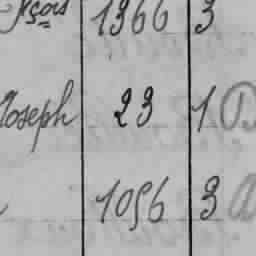 Fçois 1366 3
Joseph 23 1
1056 3